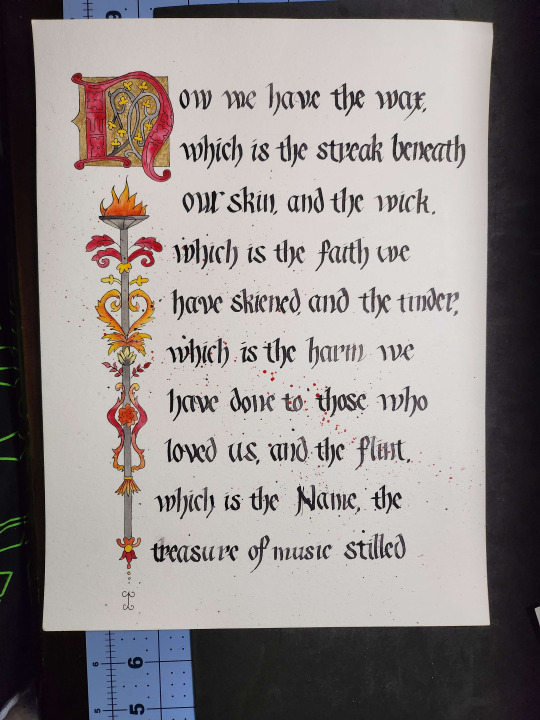 Now we have the wax,
which is the streak beneath
our skin, and the wick,
which is the faith we
have skiened, and the tinder,
which is the harm we
have done to those who
loved us, and the flint,
which is the Name, the
treasure of music stilled
6
6
5
5